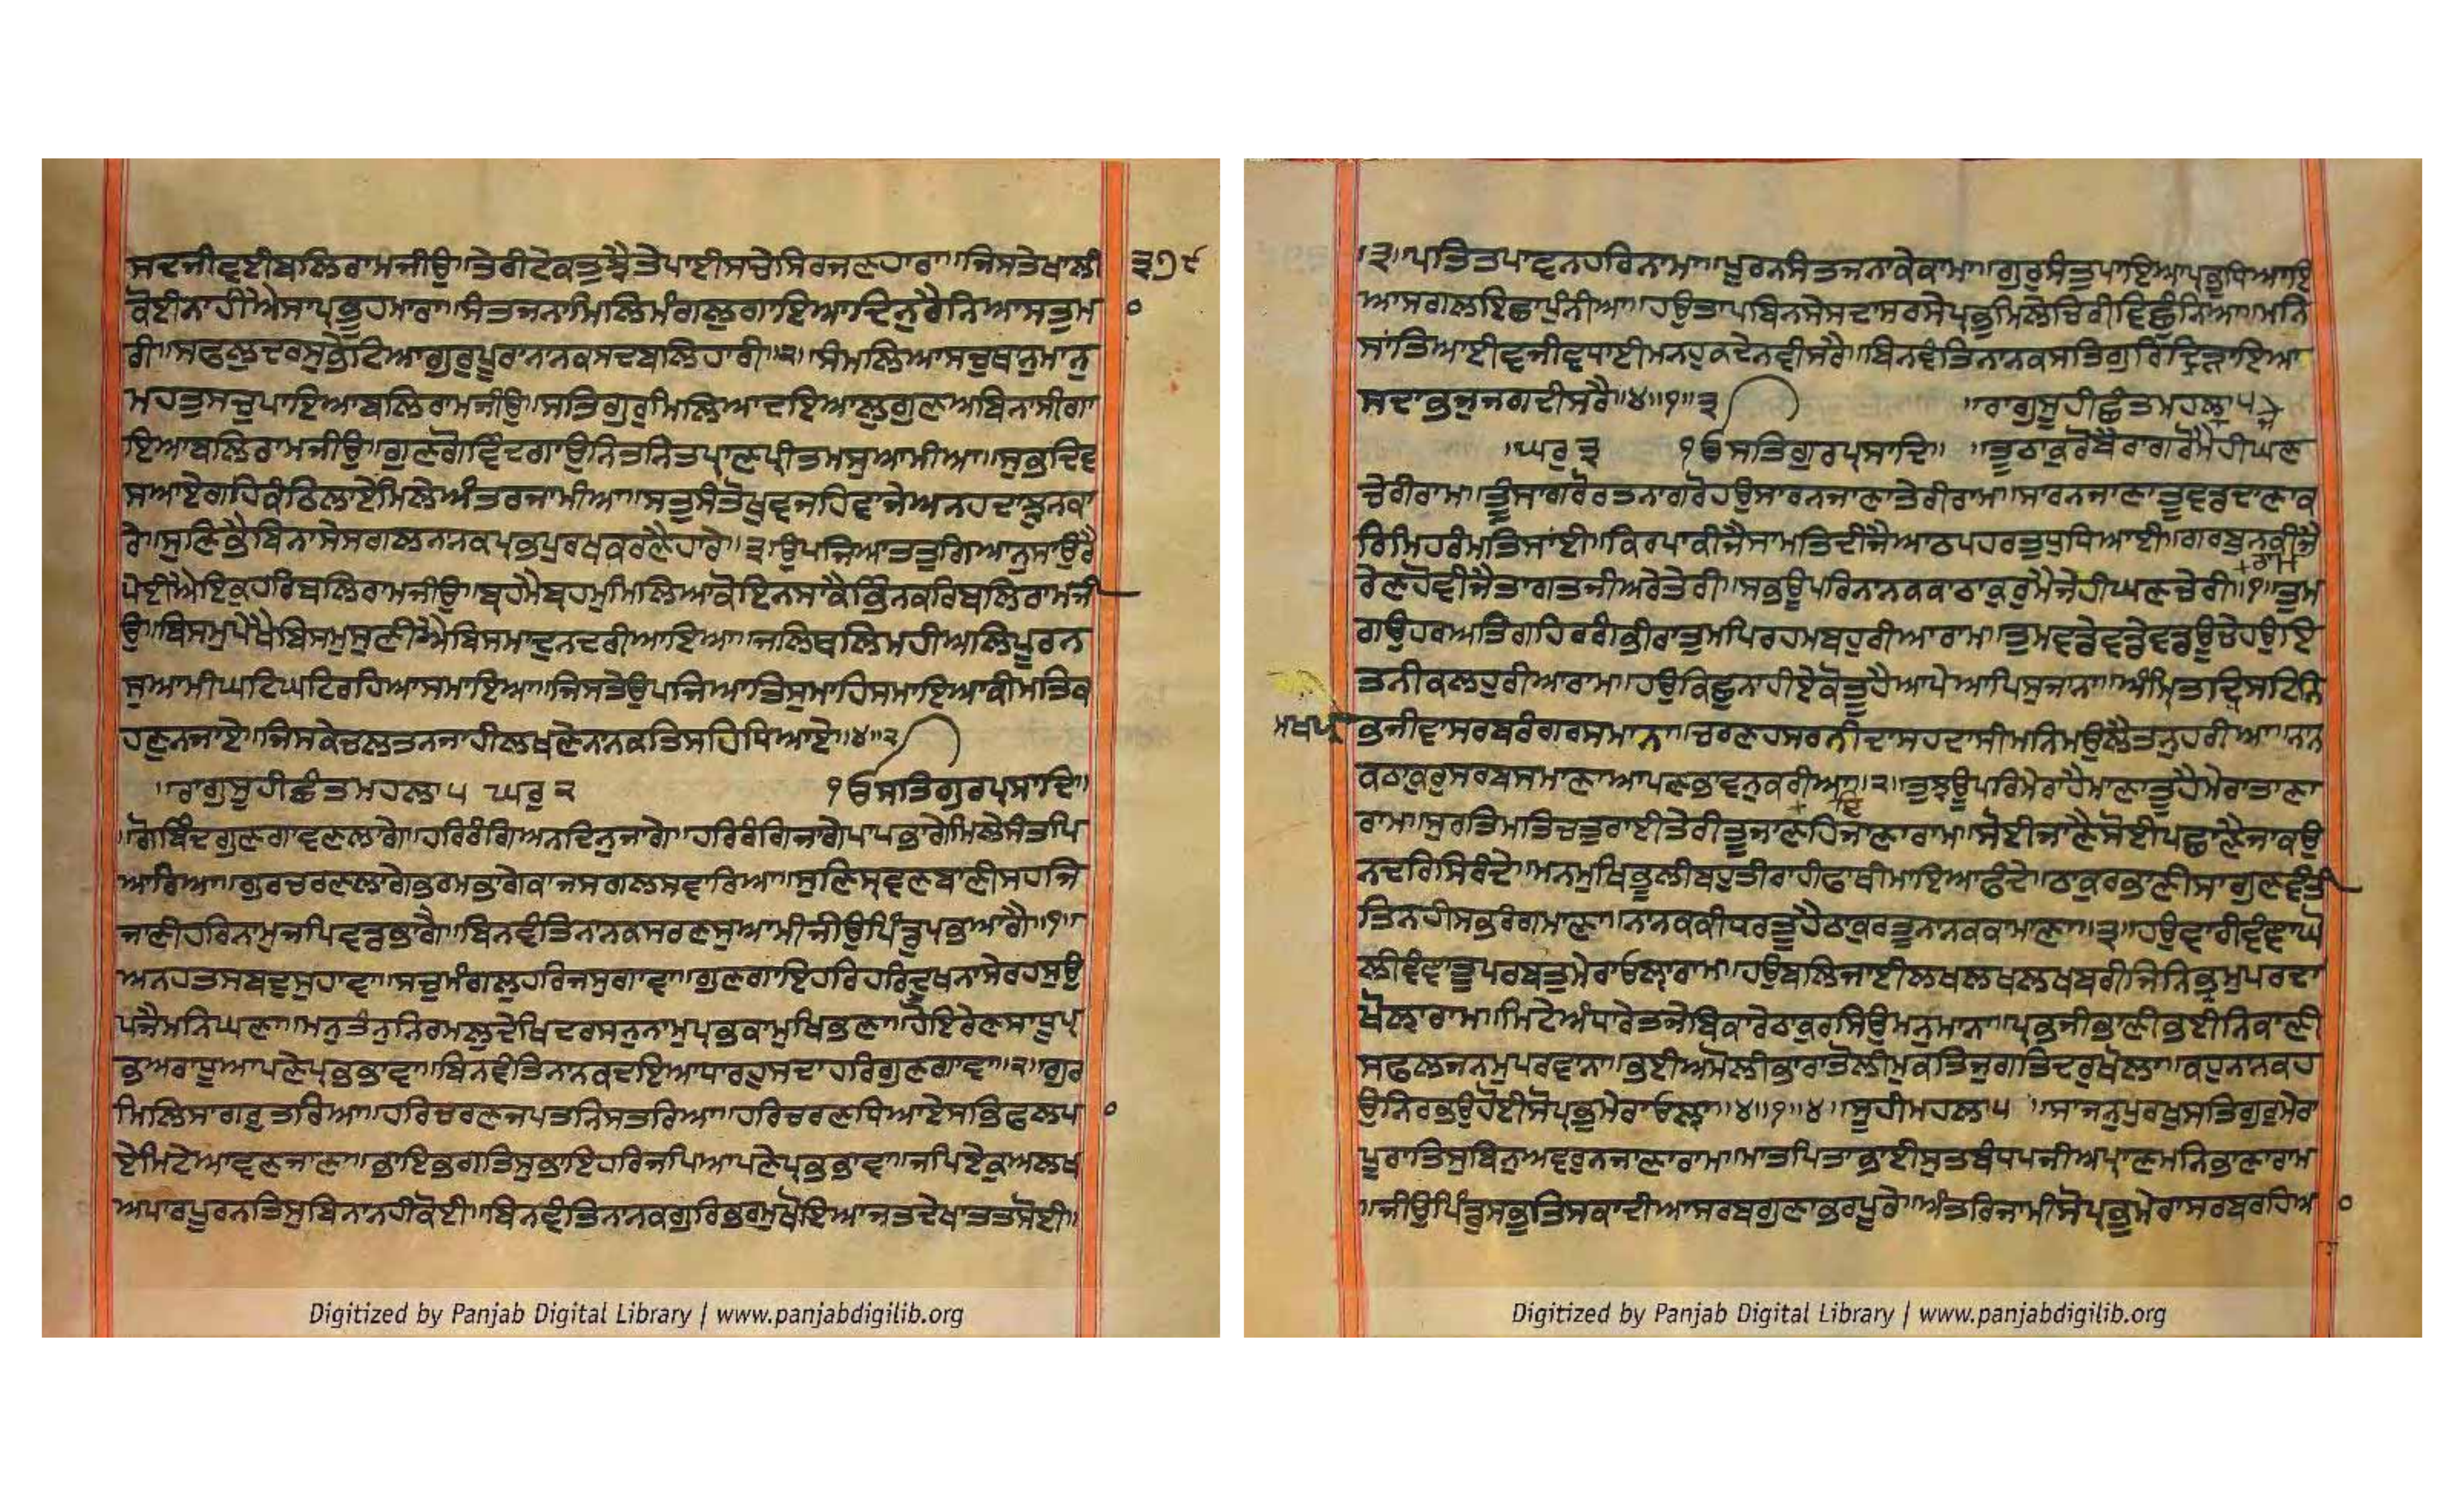 ਸਦਜੀਵਣੀਬਲਿਰਾਮਜੀਉ॥ਤੇਰੀਟੇਕਤੁਝੈਤੇਪਾਈਸਚੇਸਿਰਜਣਹਾਰਾ॥ਜਿਸਤੇਖਾਲੀ ੩੭੯
ਕੋਈਨਾਹੀਐਸਾਪ੍ਰਭੂਹਮਾਰਾ॥ਸੰਤਜਨਾਮਿਲਿਮੰਗਲੁਗਾਇਆਦਿਨੁਰੈਨਿਆਸਤੁਮ
ਰੀ॥ਸਫਲੁਦਰਸੁਭੇਟਿਆਗੁਰੁਪੂਰਾਨਾਨਕਸਦਬਲਿਹਾਰੀ॥੨॥ਸੰਮਲਿਆਸਚੁਥਨੁਮਾਨੁ
ਮਹਤੁਸਚੁਪਾਇਆਬਲਿਰਾਮਜੀਉ॥ਸਤਿਗੁਰੁਮਿਲਿਆਦਇਆਲੁਗੁਣਅਬਿਨਾਸੀਗਾ
ਇਆਬਲਿਰਾਮਜੀਉ॥ਗੁਣਗੋਵਿੰਦਗਾਉਨਿਤਨਿਤਪ੍ਰਾਣਪ੍ਰੀਤਮਸੁਆਮੀਆ॥ਸੁਭਦਿਵ
ਸਆਏਗਹਿਕੰਠਿਲਾਏਮਿਲੇਅੰਤਰਜਾਮੀਆ॥ਸਤੁਸੰਤੋਖੁਵਜਹਿਵਾਜੇਅਨਹਦਾਝੁਨਕਾ
ਰੇ॥ਸੁਣਿਭੈਬਿਨਾਸੇਸਗਲਨਾਨਕਪ੍ਰਭਪੁਰਖਕਰਣੈਹਾਰੇ॥੩॥ਉਪਜਿਆਤਤੁਗਿਆਨੁਸਾਹੁਰੈ
ਪੇਈਐਇਕੁਹਰਿਬਲਿਰਾਮਜੀਉ॥ਬ੍ਰਹਮੈਬ੍ਰਹਮੁਮਿਲਿਆਕੋਇਨਸਾਕੈਭਿੰਨਕਰਿਬਲਿਰਾਮਜੀ
ਉ॥ਬਿਸਮੁਪੇਖੈਬਿਸਮੁਸੁਣੀਐਬਿਸਮਾਦੁਨਦਰੀਆਇਆ॥ਜਲਿਥਲਿਮਹੀਅਲਿਪੂਰਨ
ਸੁਆਮੀਘਟਿਘਟਿਰਹਿਆਸਮਾਇਆ॥ਜਿਸਤੇਉਪਜਿਆਤਿਸੁਮਾਹਿਸਮਾਇਆਕੀਮਤਿਕ
ਹਣੁਨਜਾਏ॥ਜਿਸਕੇਚਲਤਨਜਾਹੀਲਖਣੇਨਾਨਕਤਿਸਹਿਧਿਆਏ॥੪॥੨
॥ਰਾਗੁਸੂਹੀਛੰਤਮਹਲਾ੫ ਘਰੁ੨ ੴਸਤਿਗੁਰਪ੍ਰਸਾਦਿ॥
॥ਗੋਬਿੰਦਗੁਣਗਾਵਣਲਾਗੇ॥ਹਰਿਰੰਗਿਅਨਦਿਨੁਜਾਗੇ॥ਹਰਿਰੰਗਿਜਾਗੇਪਾਪਭਾਗੇਮਿਲੇਸੰਤਪਿ
ਆਰਿਆ॥ਗੁਰਚਰਣਲਾਗੇਭਰਮਭਾਗੇਕਾਜਸਗਲਸਵਾਰਿਆ॥ਸੁਣਿਸ੍ਰਵਣਬਾਣੀਸਹਜਿ
ਜਾਣੀਹਰਿਨਾਮੁਜਪਿਵਡਭਾਗੈ॥ਬਿਨਵੰਤਿਨਾਨਕਸਰਣਿਸੁਆਮੀਜੀਉਪਿੰਡੁਪ੍ਰਭਆਗੈ॥੧॥
ਅਨਹਤਸਬਦੁਸੁਹਾਵਾ॥ਸਚੁਮੰਗਲੁਹਰਿਜਸੁਗਾਵਾ॥ਗੁਣਗਾਇਹਰਿਹਰਿਦੂਖਨਾਸੇਰਹਸੁਉ
ਪਜੈਮਨਿਘਣਾ॥ਮਨੁਤੰਨੁਨਿਰਮਲੁਦੇਖਿਦਰਸਨੁਨਾਮੁਪ੍ਰਭਕਾਮੁਖਿਭਣਾ॥ਹੋਇਰੇਣਸਾਧੂਪ੍ਰ
ਭਅਰਾਧੂਆਪਣੇਪ੍ਰਭਭਾਵਾ॥ਬਿਨਵੰਤਿਨਾਨਕਦਇਆਧਾਰਹੁਸਦਾਹਰਿਗੁਣਗਾਵਾ॥੨॥ਗੁਰ
ਮਿਲਿਸਾਗਰੁਤਰਿਆ॥ਹਰਿਚਰਣਜਪਤਨਿਸਤਰਿਆ॥ਹਰਿਚਰਣਧਿਆਏਸਭਿਫਲਪਾ
ਏਮਿਟੇਆਵਣਜਾਣਾ॥ਭਾਇਭਗਤਿਸੁਭਾਇਹਰਿਜਪਿਆਪਣੇਪ੍ਰਭਭਾਵਾ॥ਜਪਿਏਕੁਅਲਖ
ਅਪਾਰਪੂਰਨਤਿਸੁਬਿਨਾਨਹੀਕੋਈ॥ਬਿਨਵੰਤਿਨਾਨਕਗੁਰਿਭਰਮੁਖੋਇਆਜਤਦੇਖਾਤਤਸੋਈ॥
੩॥ਪਤਿਤਪਾਵਨਹਰਿਨਾਮਾ॥ਪੂਰਨਸੰਤਜਨਾਕੇਕਾਮਾ॥ਗੁਰੁਸੰਤੁਪਾਇਆਪ੍ਰਭੁਧਿਆਇ
ਆਸਗਲਇਛਾਪੁੰਨੀਆ॥ਹਉਤਾਪਬਿਨਸੇਸਦਾਸਰਸੇਪ੍ਰਭਮਿਲੇਚਿਰੀਵਿਛੁੰਨਿਆ॥ਮਨਿ
ਸਾਂਤਿਆਈਵਜੀਵਧਾਈਮਨਹੁਕਦੇਨਵੀਸਰੈ॥ਬਿਨਵੰਤਿਨਾਨਕਸਤਿਗੁਰਿਦ੍ਰਿੜਾਇਆ
ਸਦਾਭਜੁਜਗਦੀਸਰੈ॥੪॥੧॥੩ ॥ਰਾਗੁਸੂਹੀਛੰਤਮਹਲਾ੫
॥ਘਰੁ੩ ੴਸਤਿਗੁਰਪ੍ਰਸਾਦਿ॥ ॥ਤੂਠਾਕੁਰੋਬੈਰਾਗਰੋਮੈਜੇਹੀਘਣ
ਚੇਰੀਰਾਮ॥ਤੂੰਸਾਗਰੋਰਤਨਾਗਰੋਹਉਸਾਰਨਜਾਣਾਤੇਰੀਰਾਮ॥ਸਾਰਨਜਾਣਾਤੂਵਡਦਾਣਾਕ
ਰਿਮਿਹਰੰਮਤਿਸਾਂਈ॥ਕਿਰਪਾਕੀਜੈਸਾਮਤਿਦੀਜੈਆਠਪਹਰਤੁਧੁਧਿਆਈ॥ਗਰਬੁਨਕੀਜੈ
ਰੇਣਹੋਵੀਜੈਤਾਗਤਜੀਅਰੇਤੇਰੀ॥ਸਭਊਪਰਿਨਾਨਕਕਾਠਾਕੁਰੁਮੈਜੇਹੀਘਣਚੇਰੀ॥੧॥ਤੁਮ
ਗਉਹਰਅਤਿਗਹਿਰਗੰਭੀਰਾਤੁਮਪਿਰਹਮਬਹੁਰੀਆਰਾਮ॥ਤੁਮਵਡੇਵਡੇਵਡਊਚੇਹਉਇ
ਤਨੀਕਲਹੁਰੀਆਰਾਮ॥ਹਉਕਿਛੁਨਾਹੀਏਕੋਤੂਹੈਆਪੇਆਪਿਸੁਜਾਨਾ॥ਅੰਮ੍ਰਿਤਦ੍ਰਿਸਟਿਨਿ
ਭਜੀਵਾਸਰਬਰੰਗਰਸਮਾਨਾ॥ਚਰਣਹਸਰਨੀਦਾਸਹਦਾਸੀਮਨਿਮਉਲੈਤਨੁਹਰੀਆ॥ਨਾਨ
ਕਠਾਕੁਰੁਸਰਬਸਮਾਣਾਆਪਣਭਾਵਨੁਕਰੀਆ॥੨॥ਤੁਝੁਊਪਰਿਮੇਰਾਹੈਮਾਣਾਤੂਹੈਮੇਰਾਤਾਣਾ
ਰਾਮ॥ਸੁਰਤਿਮਤਿਚਤੁਰਾਈਤੇਰੀਤੂਜਾਣਹਿਜਾਣਾਰਾਮ॥ਸੋਈਜਾਣੈਸੋਈਪਛਾਣੈਜਾਕਉ
ਨਦਰਿਸਿਰੰਦੇ॥ਮਨਮੁਖਿਭੂਲੀਬਹੁਤੀਰਾਹੀਫਾਥੀਮਾਇਆਫੰਦੇ॥ਠਾਕੁਰਭਾਣੀਸਾਗੁਣਵੰਤੀ
ਤਿਨਹੀਸਭਰੰਗਮਾਣਾ॥ਨਾਨਕਕੀਧਰਤੂਹੈਠਾਕੁਰਤੂਨਾਨਕਕਾਮਾਣਾ॥੩॥ਹਉਵਾਰੀਵੰਞਾਘੋ
ਲੀਵੰਞਾਤੂਪਰਬਤੁਮੇਰਾਓਲਾਰਾਮ॥ਹਉਬਲਿਜਾਈਲਖਲਖਲਖਬਰੀਜਿਨਿਭ੍ਰਮੁਪਰਦਾ
ਖੋਲਾਰਾਮ॥ਮਿਟੇਅੰਧਾਰੇਤਜੇਬਿਕਾਰੇਠਾਕੁਰਸਿਉਮਨੁਮਾਨਾ॥ਪ੍ਰਭਜੀਭਾਣੀਭਈਨਿਕਾਣੀ
ਸਫਲਜਨਮੁਪਰਵਾਨਾ॥ਭਈਅਮੋਲੀਭਾਰਾਤੋਲੀਮੁਕਤਿਜੁਗਤਿਦਰੁਖੋਲਾ॥ਕਹੁਨਾਨਕਹ
ਉਨਿਰਭਉਹੋਈਸੋਪ੍ਰਭੁਮੇਰਾਓਲਾ॥੪॥੧॥੪॥ਸੂਹੀਮਹਲਾ੫ ॥ਸਾਜਨੁਪੁਰਖੁਸਤਿਗੁਰੁਮੇਰਾ
ਪੂਰਾਤਿਸੁਬਿਨੁਅਵਰੁਨਜਾਣਾਰਾਮ॥ਮਾਤਪਿਤਾਭਾਈਸੁਤਬੰਧਪਜੀਅਪ੍ਰਾਣਮਨਿਭਾਣਾਰਾਮ
॥ਜੀਉਪਿੰਡੁਸਭੁਤਿਸਕਾਦੀਆਸਰਬਗੁਣਾਭਰਪੂਰੇ॥ਅੰਤਰਿਜਾਮੀਸੋਪ੍ਰਭੁਮੇਰਾਸਰਬਰਹਿਆ
Digitized by Panjab Digital Library | www.panjabdigilib.org
Digitized by Panjab Digital Library | www.panjabdigilib.org